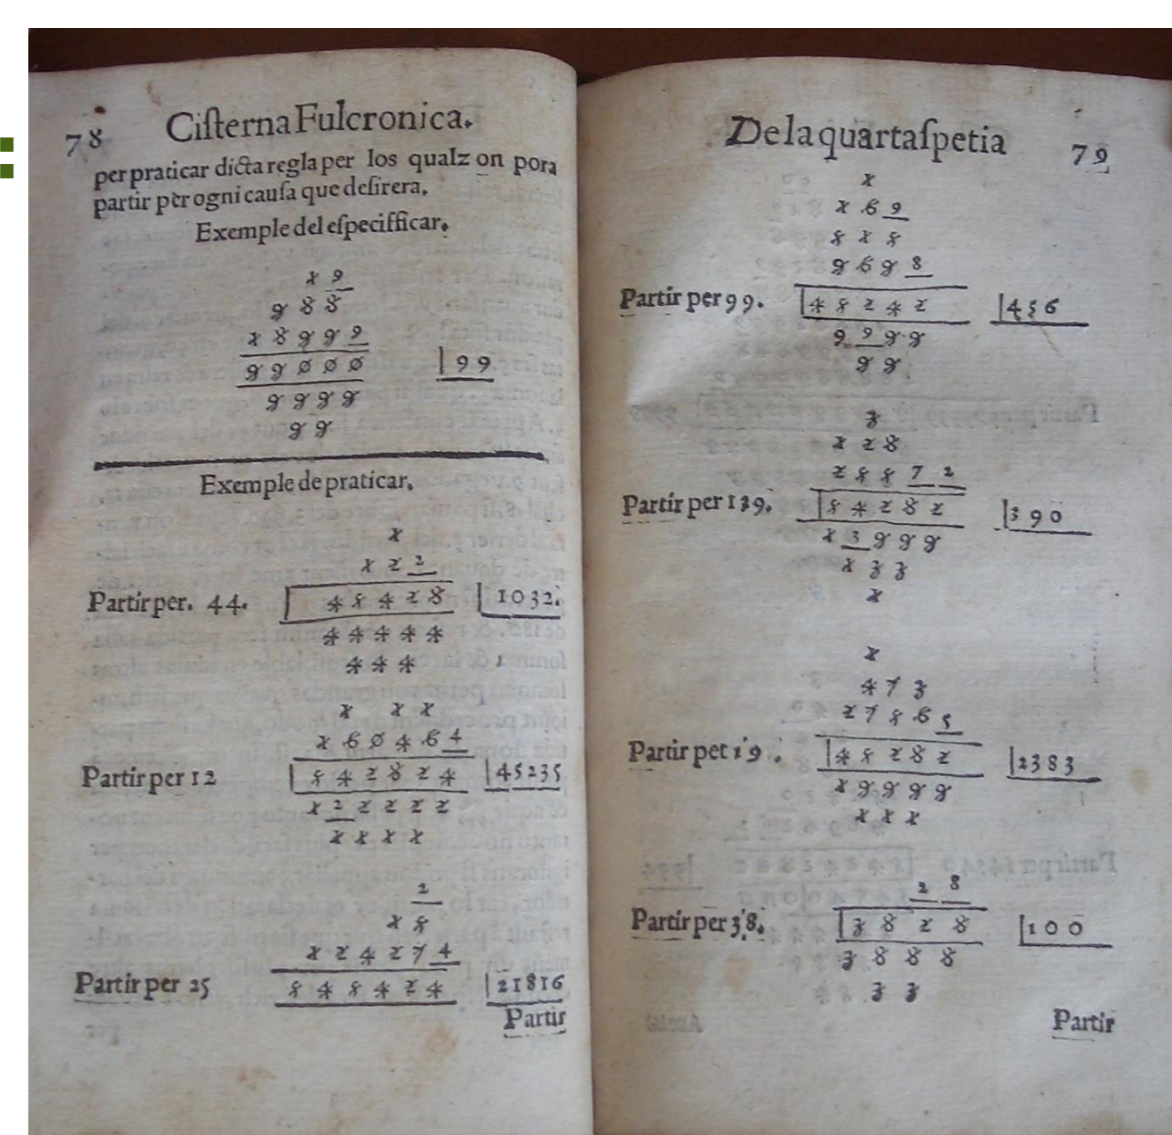 78 Ciſterna Fulcronica.
per praticar dicta regla per los qualz on pora
partir per ogni cauſa que deſirera.
Exemple del eſpecifficar.
1 9
9 8 8
1 8 9 9 9
9 9 0 0 0 | 99
9 9 9 9
9 9
Exemple de praticar.
1
1 2 2
Partir per. 44. | 4 5 4 2 8 | 1032.
4 4 4 4 4
4 4 4
1 1 1
1 6 0 4 6 4
Partir per 12 | 5 4 2 8 2 4 | 45235
1 2 2 2 2 2
1 1 1 1
2
1 5
1 2 4 2 7 4
Partir per 25 5 4 5 4 2 4 | 21816
Partir
De la quarta ſpetia 79
1
1 6 9
5 1 5
9 6 9 8
Partir per 99. | 4 5 2 4 2 | 456
9 9 9 9
9 9
3
1 2 8
2 5 5 7 2
Partir per 139. | 5 4 2 8 2 | 390
1 3 9 9 9
1 3 3
1
1
4 7 3
2 7 8 6 5
Partir pet 19 . | 4 5 2 8 2 | 2383
1 9 9 9 9
1 1 1
2 8
Partir per 38. | 3 8 2 8 | 100
3 8 8 8
3 3
Partir